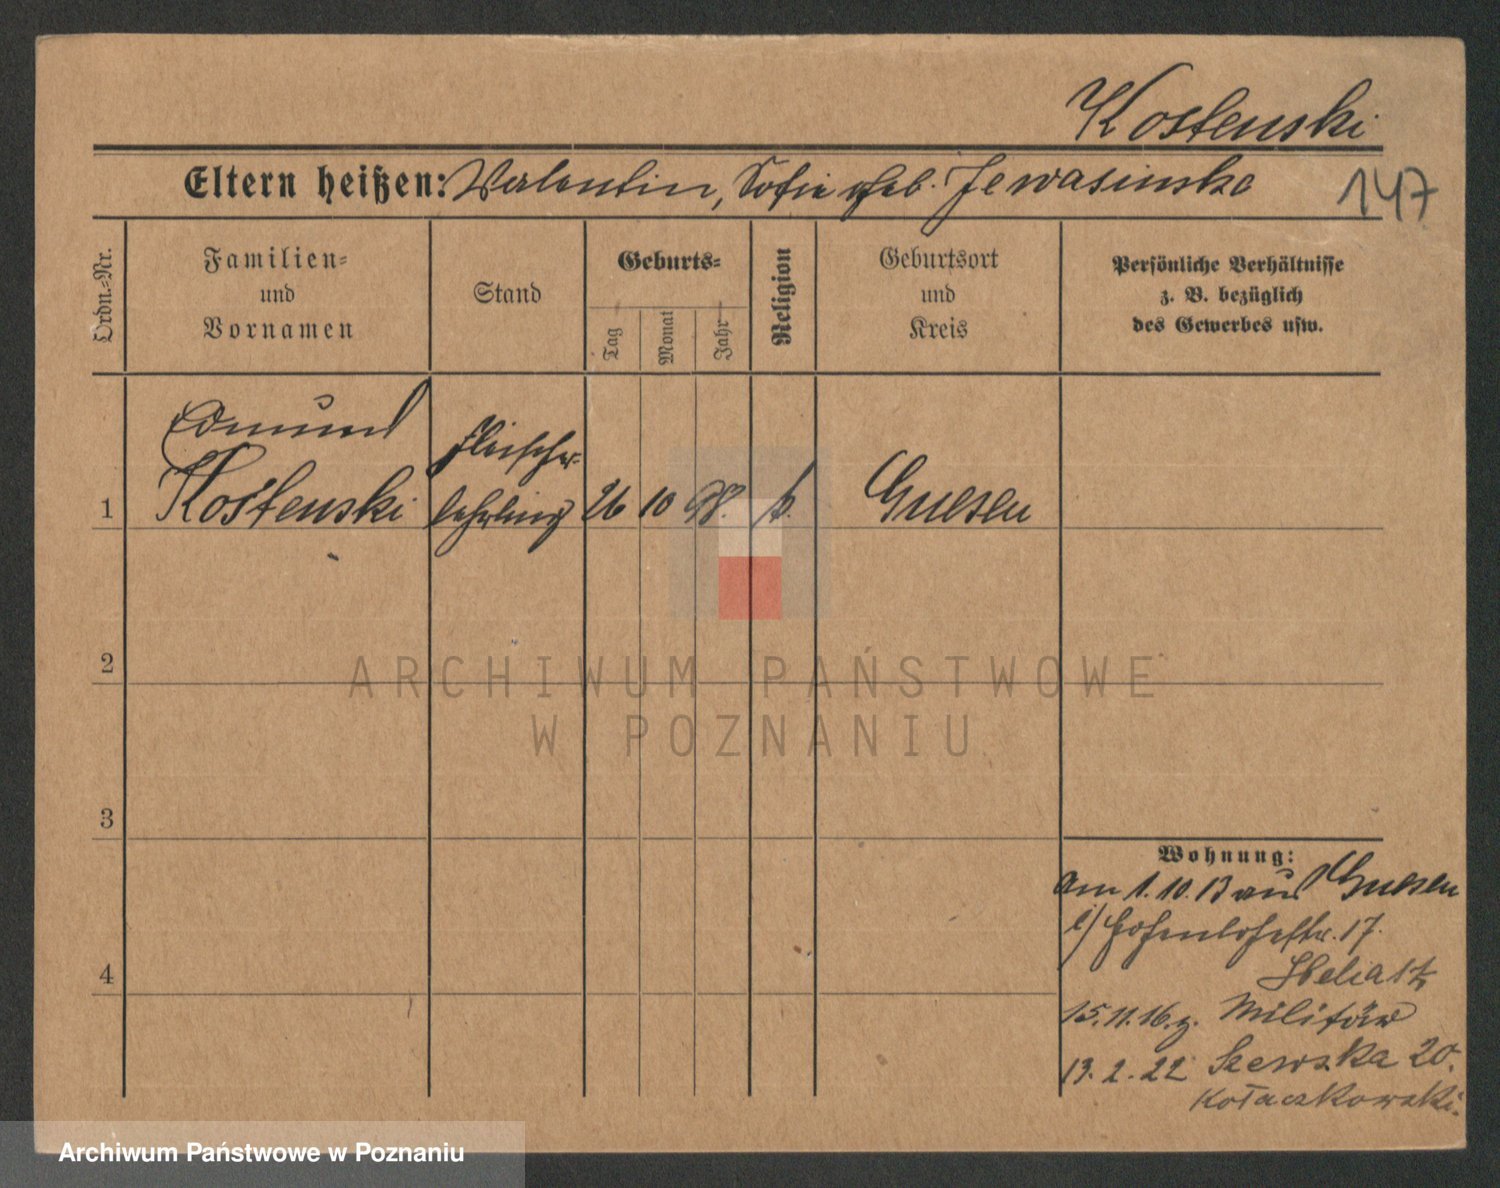 Kostenski
Eltern heißen: Valentin, Sofie geb. Jewasinska
147
Ordn.-Nr.
Familien-
und
Vornamen
Stand
Geburts-
Tag
Monat
Jahr
Religion
Geburtsort
und
Kreis
Persönliche Verhältnisse
z. B. bezüglich
des Gewerbes usw.
Edmund
Kostenski
Fleischer-
lehrling
1
26
10
98.
k.
Gnesen
2
ARCHIWUM PAŃSTWOWE
W POZNANIU
3
4
Wohnung:
am 1.10.13 aus Gnesen
Hohenlohestr. 17.
15.11.16. z. Militär
13.2.22 Szewska 20.
Kołaczkowski.
Archiwum Państwowe w Poznaniu